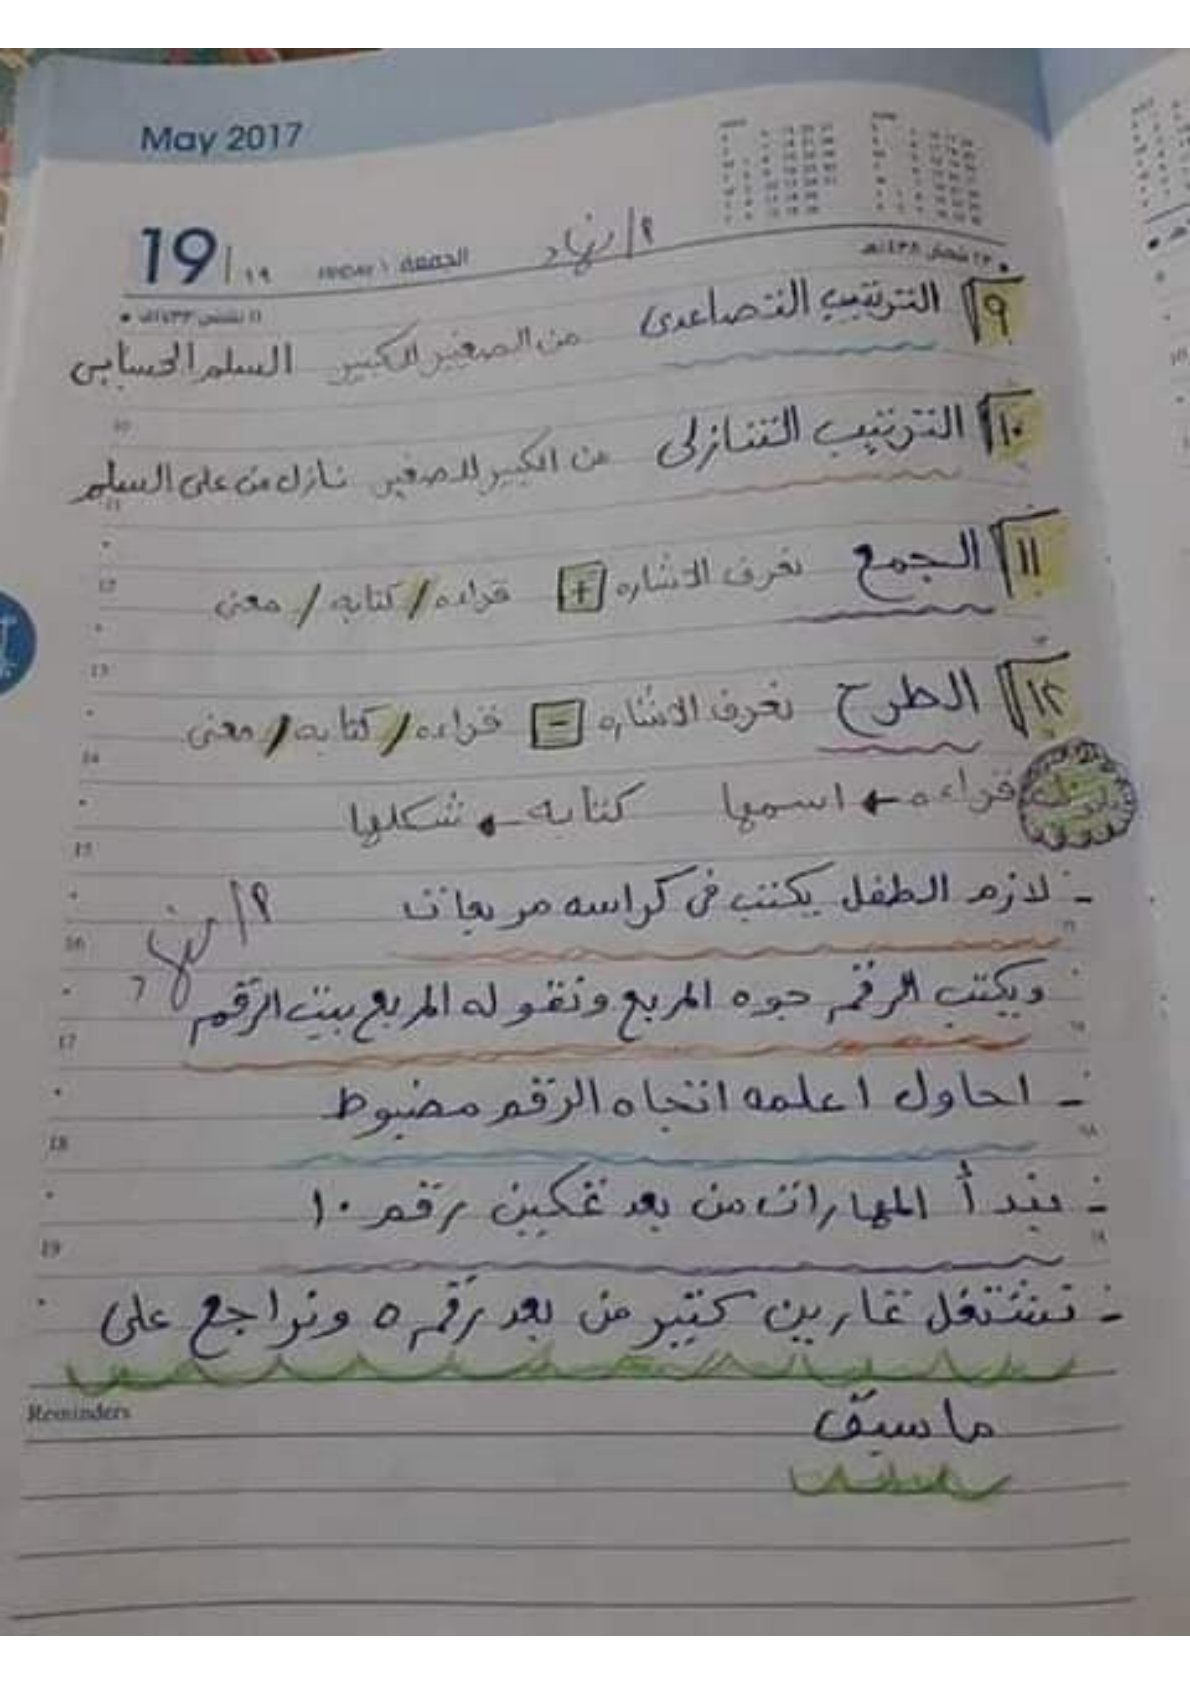 May 2017
19 | ١٩ FRIDAY الجمعة أ/ نهاد
٩ الترتيب التصاعدى من الصغير للكبير السلم الحسابى
10
١٠ الترتيب التنازلى من الكبير للصغير نازل من على السلم
11
١١ الجمع نعرف الاشاره + قراءه / كتابه / معنى
12
13
١٢ الطرح نعرف الاشاره - قراءه / كتابه / معنى
14
قراءه ← اسمها كتابه ← شكلها
15
- لازم الطفل يكتب فى كراسه مربعات أ/ نهاد
16
ويكتب الرقم جوه المربع ونقوله المربع بيت الرقم
17
- احاول اعلمه اتجاه الرقم مضبوط
18
- نبدأ المهارات من بعد تمكين رقم ١٠
19
- نشتغل تمارين كتير من بعد رقم ٥ ونراجع على
Reminders
ما سبق